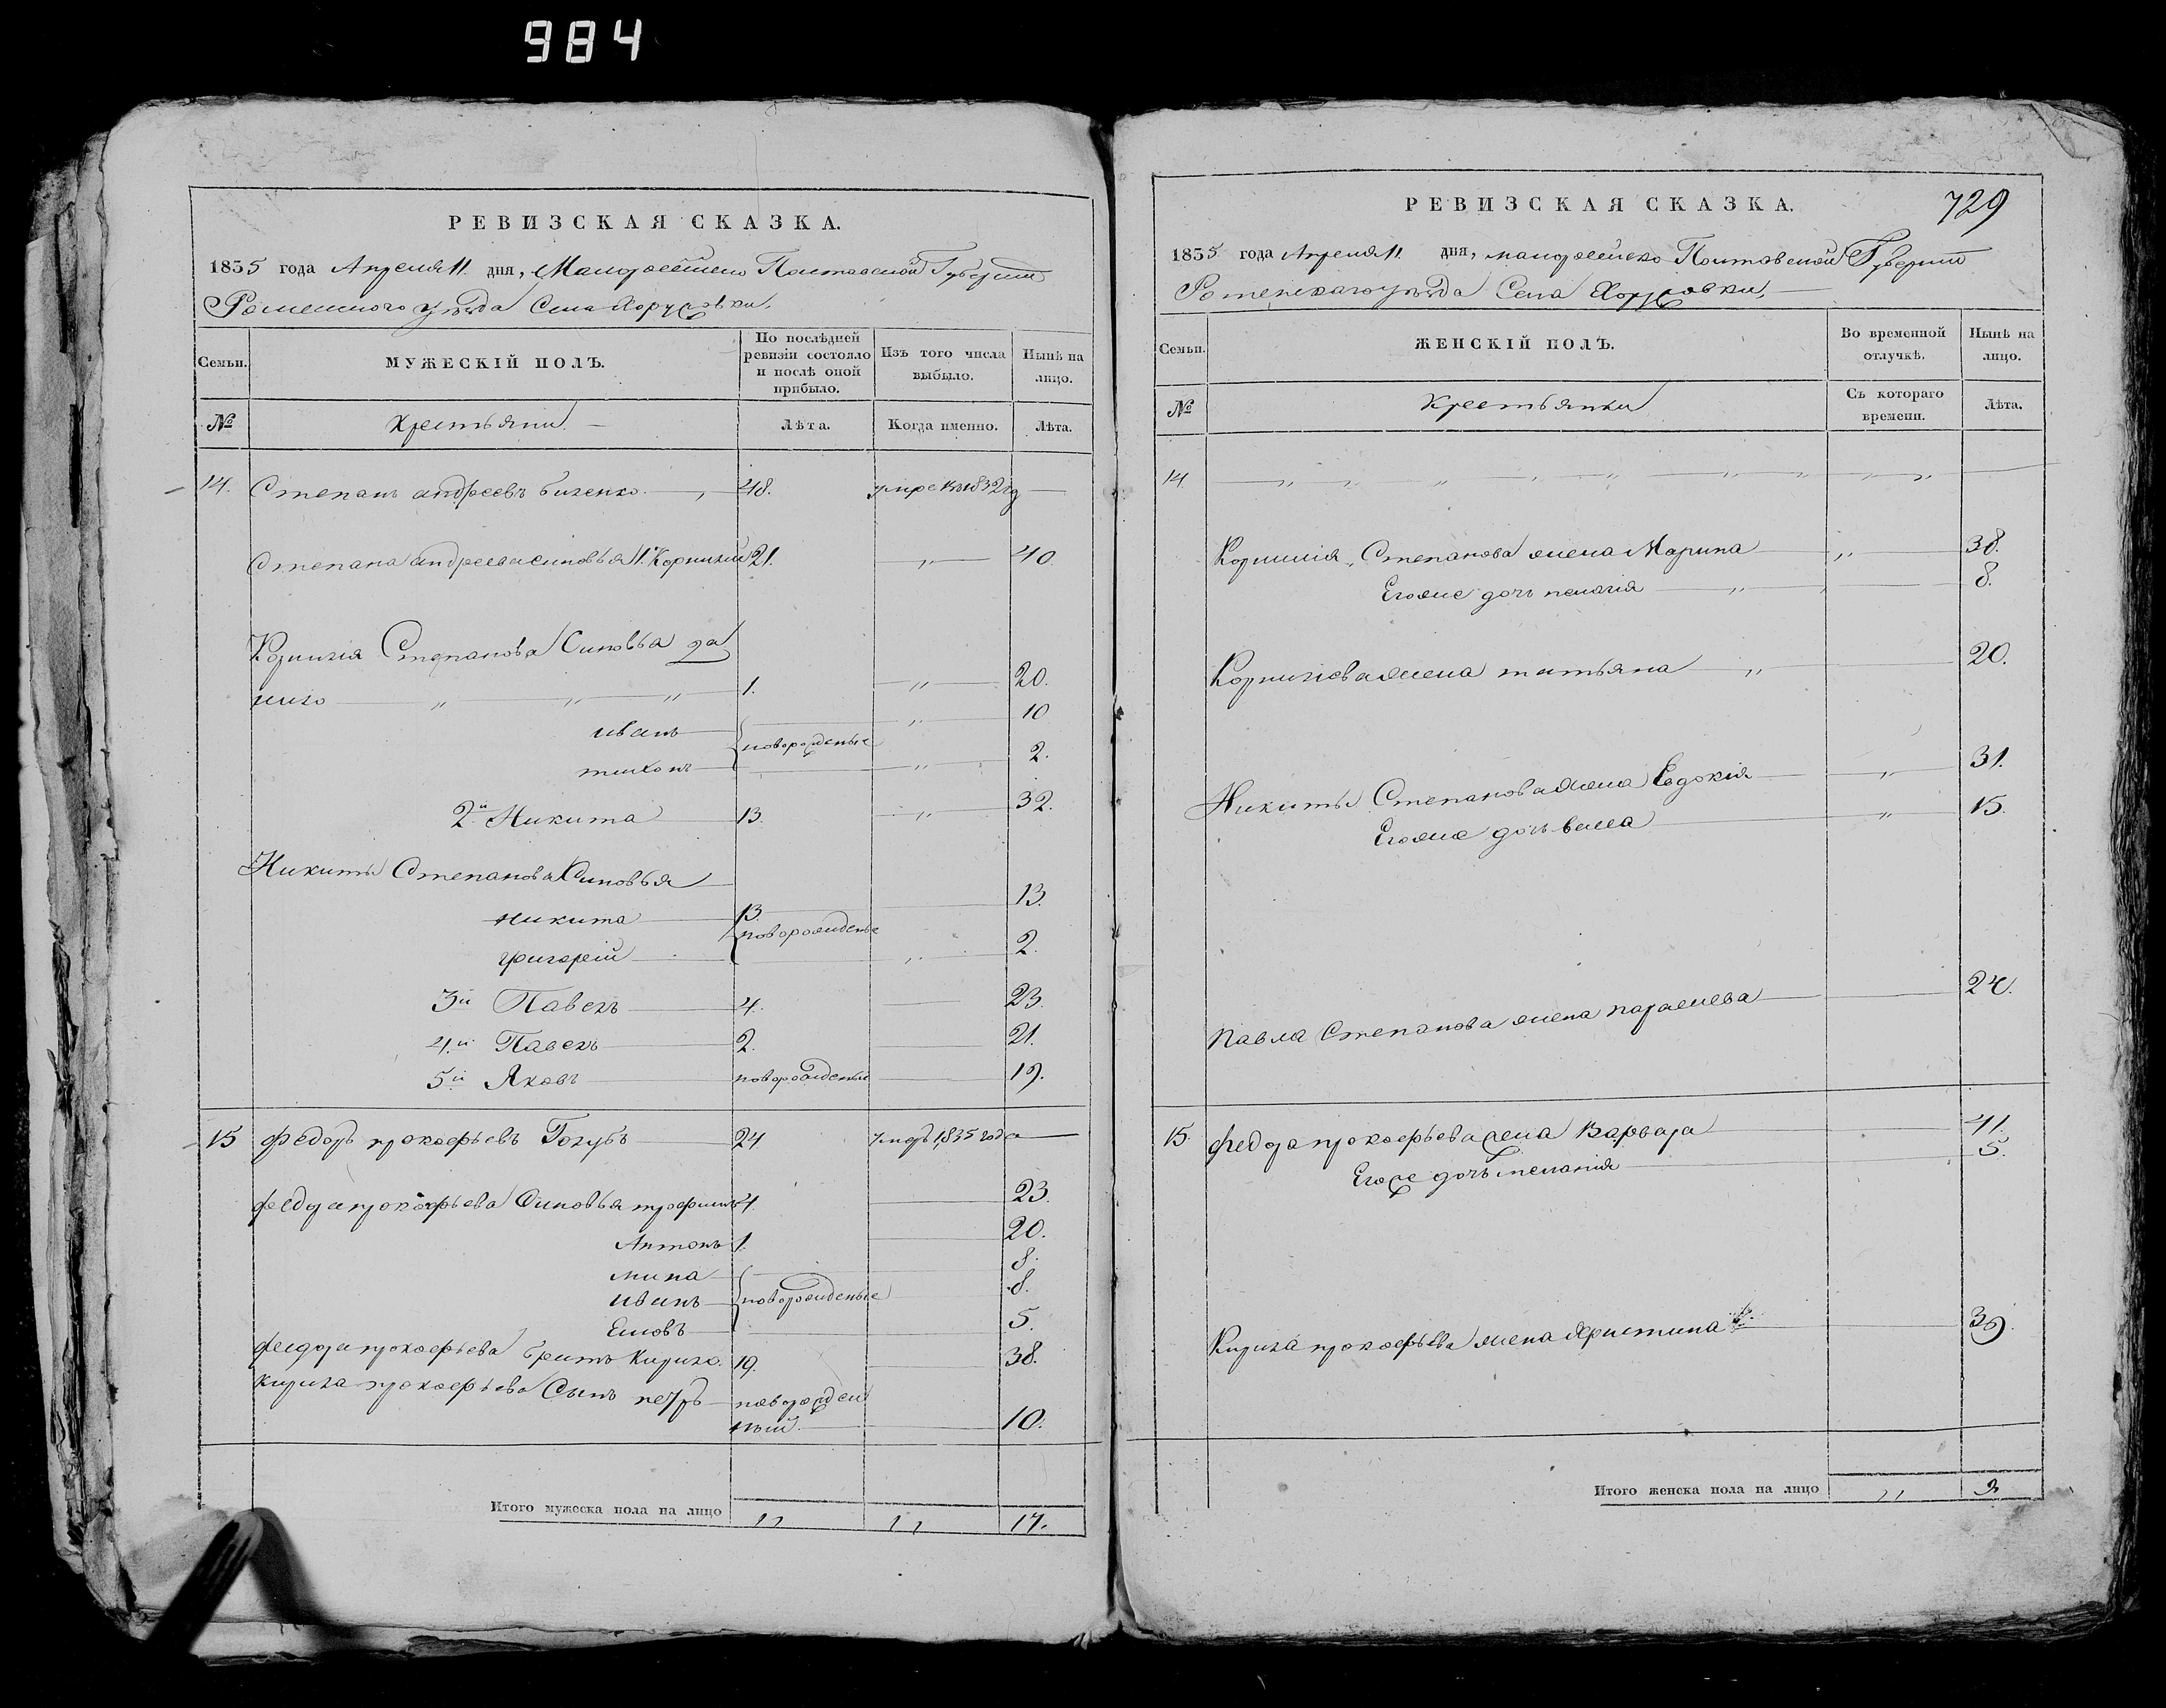 984
РЕВИЗСКАЯ СКАЗКА.
1835 года Апреля 11. дня, Малоросійско Полтавской Губерніи
Роменского уѣзда Села Хоружовки,
Семьи.
МУЖЕСКІЙ ПОЛЪ.
По послѣдней ревизіи состояло и послѣ оной прибыло.
Изъ того числа выбыло.
Нынѣ на лицо.
№
Крестьяни.
Лѣта.
Когда именно.
Лѣта.
14. Степанъ андреевъ 48. умре въ 1832 год
Степана андреева синовья 1й Корнилий 21. 40.
Корнилія Степанова Синовья да
нило 1. 20.
иванъ 10
новорожденые
тихонъ 2.
2й Никита 13. 32.
Никиты Степанова Синовья
никита 13. 13.
новорожденые
григорій 2.
3й Павелъ 4. 23.
4.й Павелъ 2. 21.
5й Яковъ новорожденый 19.
15 федоръ прокофьевъ Голубъ 24 умеръ 1835 года
федора прокофьева Синовья трофимъ 4. 23.
Антонъ 1. 20.
мина 8.
иванъ новорожденые 8.
5.
федора прокофьева братъ Кирило. 19. 38.
Кирила прокофьева Сынъ петръ новорожден
ный. 10.
Итого мужеска пола на лицо 17.
РЕВИЗСКАЯ СКАЗКА.
729
1835 года Апреля 11. дня, малоросійско Полтавской Губерніи
Роменскаго уѣзда Села Хоружовки,
Семьи.
ЖЕНСКІЙ ПОЛЪ.
Во временной отлучкѣ.
Нынѣ на лицо.
№
Крестьянки
Съ котораго времени.
Лѣта.
14
Корнилія Степанова жена Марина 38.
Егоже дочь пелагія 8.
Корнилова жена татьяна 20.
Никиты Степанова жена Евдокія 31.
Егоже дочь 15.
Павла Степанова жена параскева 24.
15. федора прокофьева жена Варвара 41.
Егоже дочь меланія 5.
Кирила прокофьева жена Христина 39.
Итого женска пола на лицо